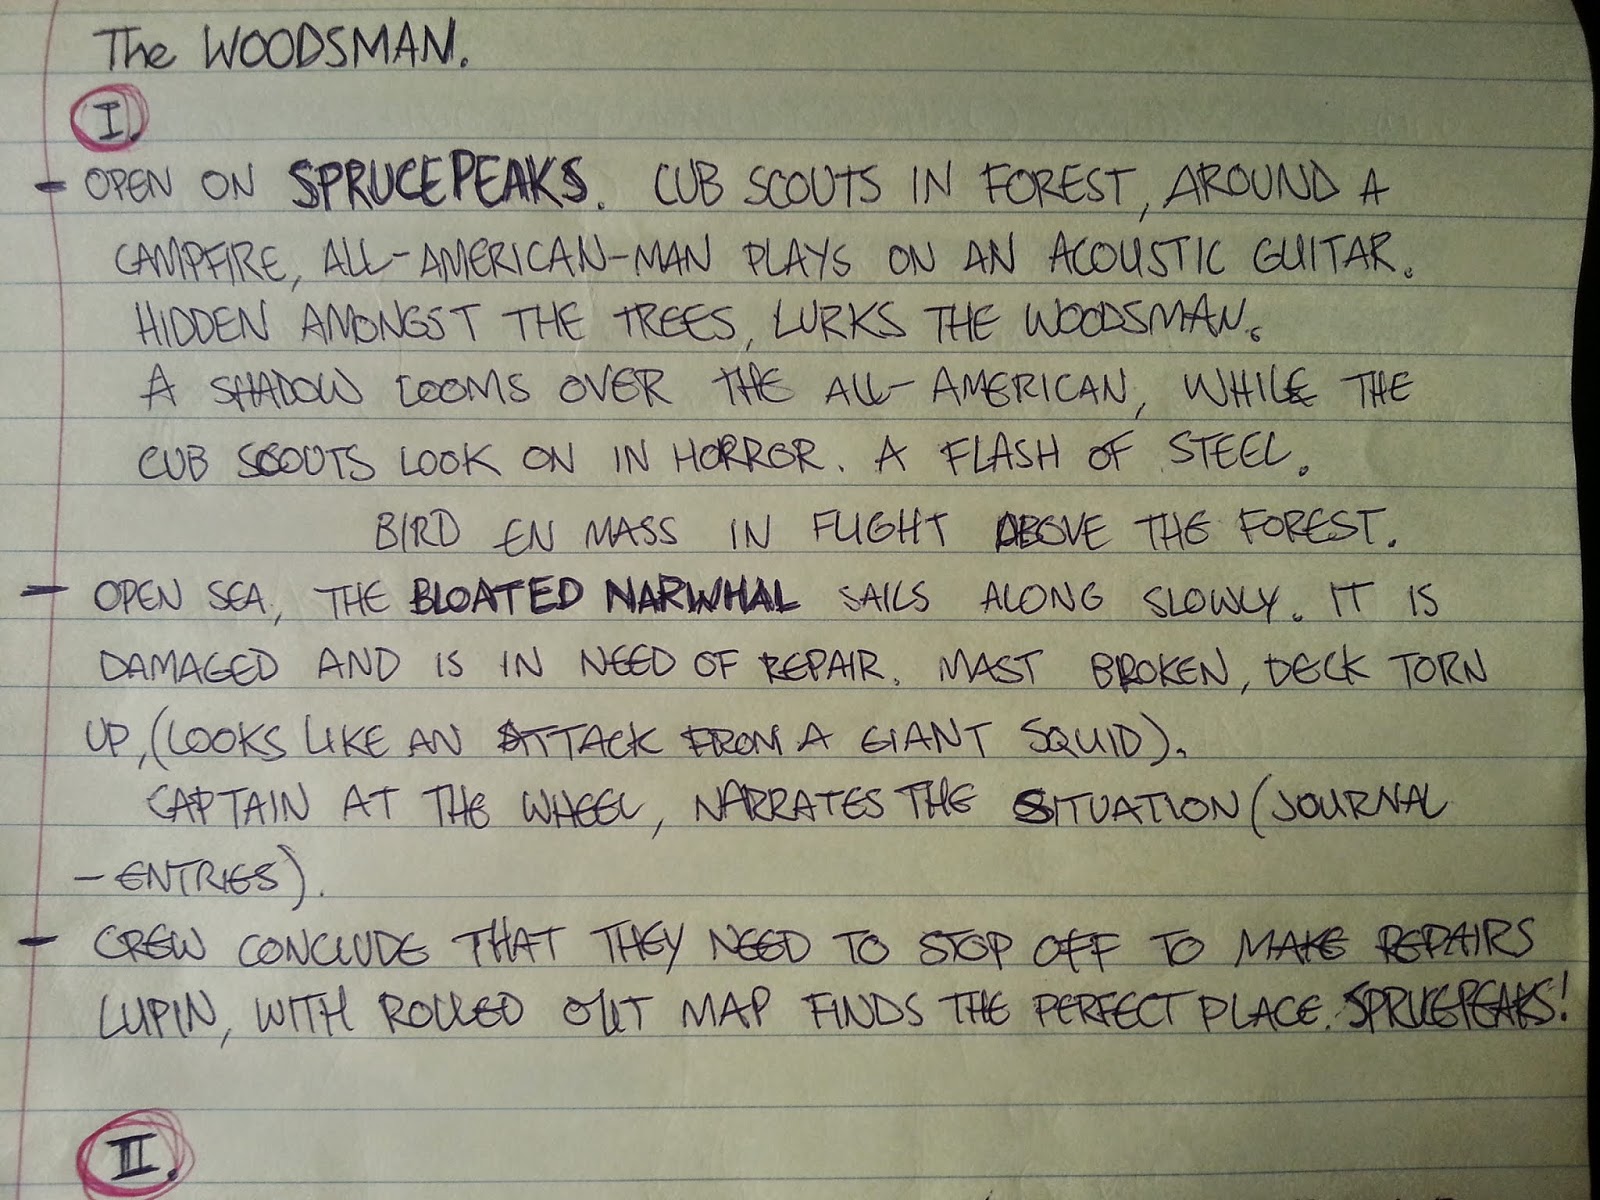 The WOODSMAN.
I.
- OPEN ON SPRUCEPEAKS. CUB SCOUTS IN FOREST, AROUND A
CAMPFIRE, ALL-AMERICAN-MAN PLAYS ON AN ACOUSTIC GUITAR.
HIDDEN AMONGST THE TREES, LURKS THE WOODSMAN.
A SHADOW LOOMS OVER THE ALL-AMERICAN, WHILE THE
CUB SCOUTS LOOK ON IN HORROR. A FLASH OF STEEL.
BIRD EN MASS IN FLIGHT ABOVE THE FOREST.
- OPEN SEA, THE BLOATED NARWHAL SAILS ALONG SLOWLY. IT IS
DAMAGED AND IS IN NEED OF REPAIR. MAST BROKEN, DECK TORN
UP, (LOOKS LIKE AN ATTACK FROM A GIANT SQUID).
CAPTAIN AT THE WHEEL, NARRATES THE SITUATION (JOURNAL
- ENTRIES).
- CREW CONCLUDE THAT THEY NEED TO STOP OFF TO MAKE REPAIRS
LUPIN, WITH ROLLED OUT MAP FINDS THE PERFECT PLACE. SPRUCEPEAKS!
II.